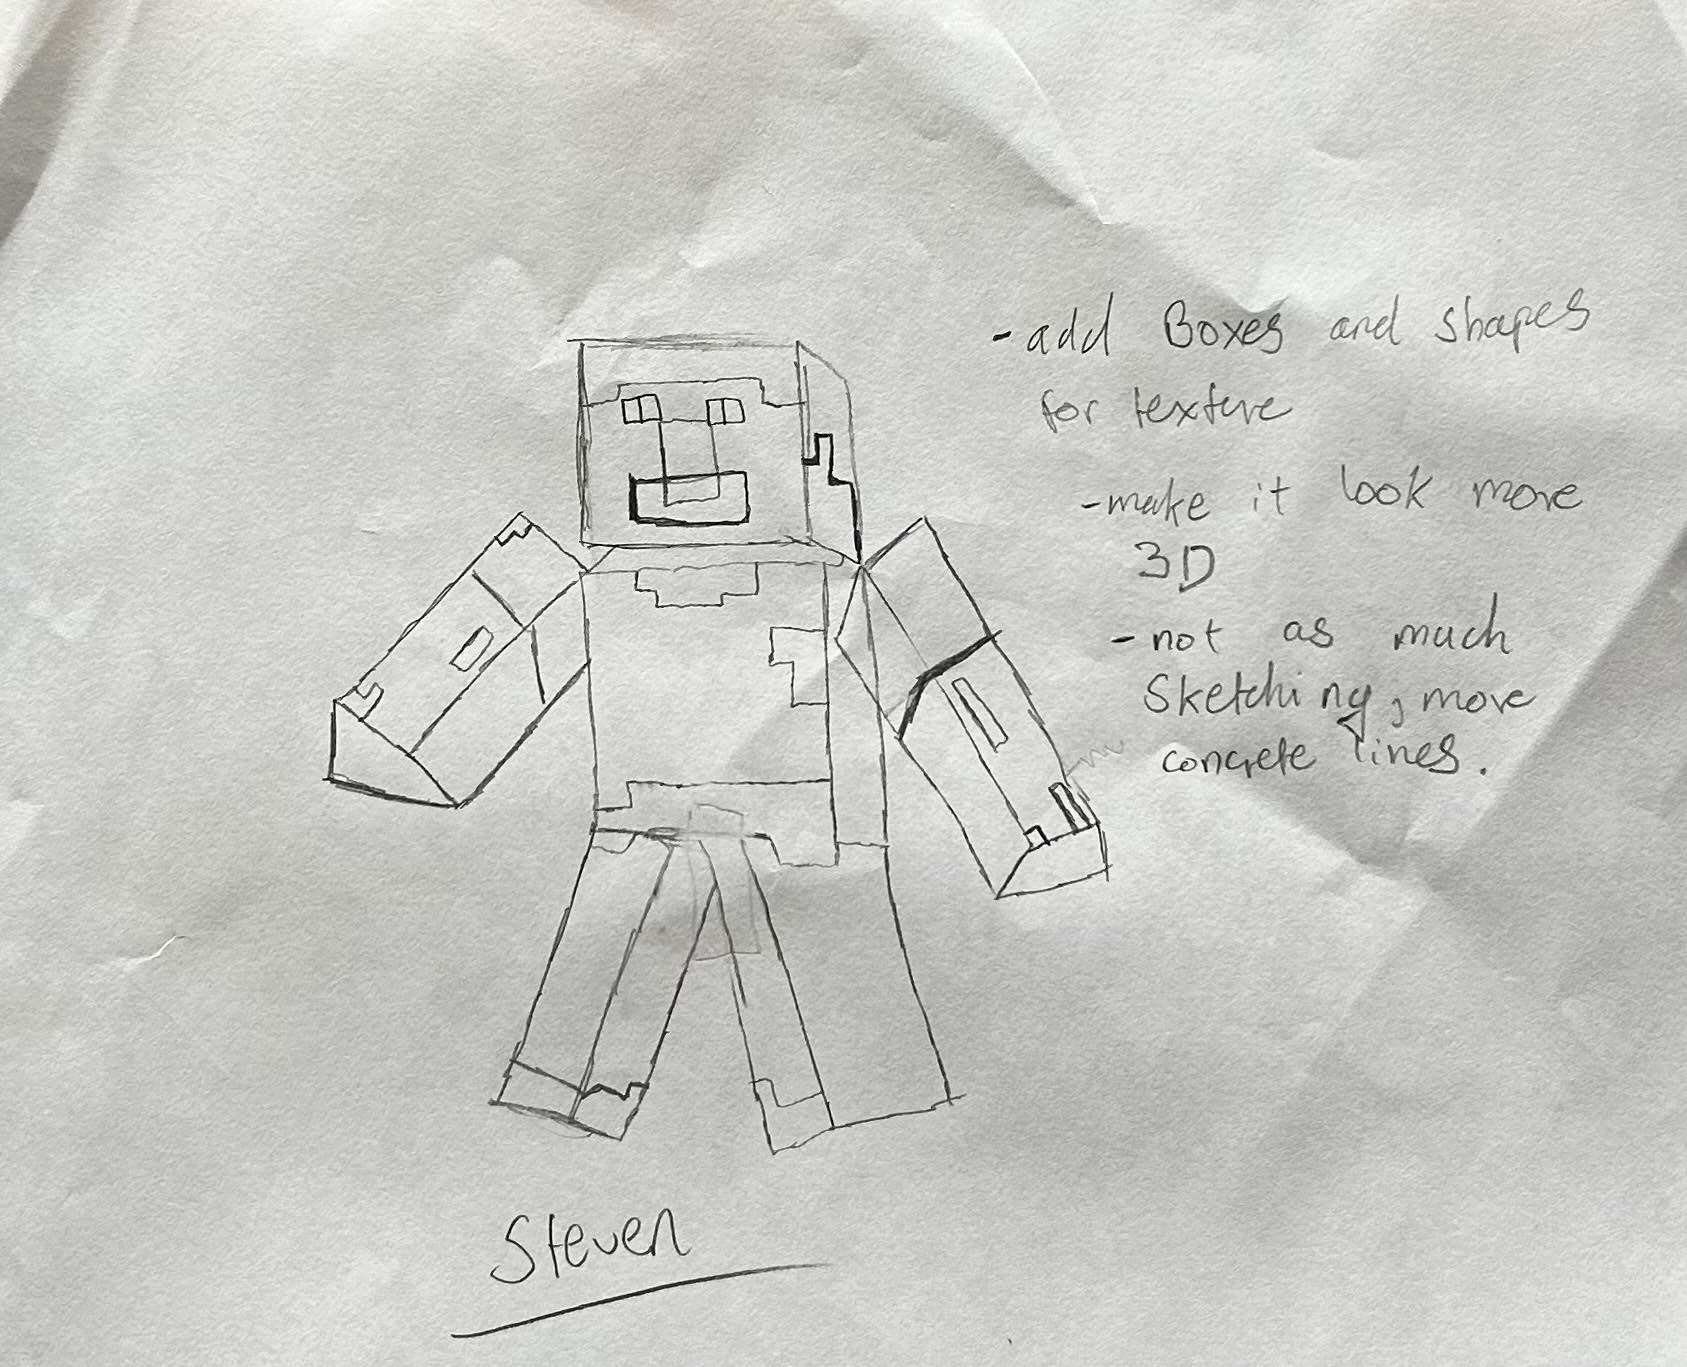 - add Boxes and shapes
for texture
- make it look more
3D
- not as much
Sketching, more
concrete lines.
Steven